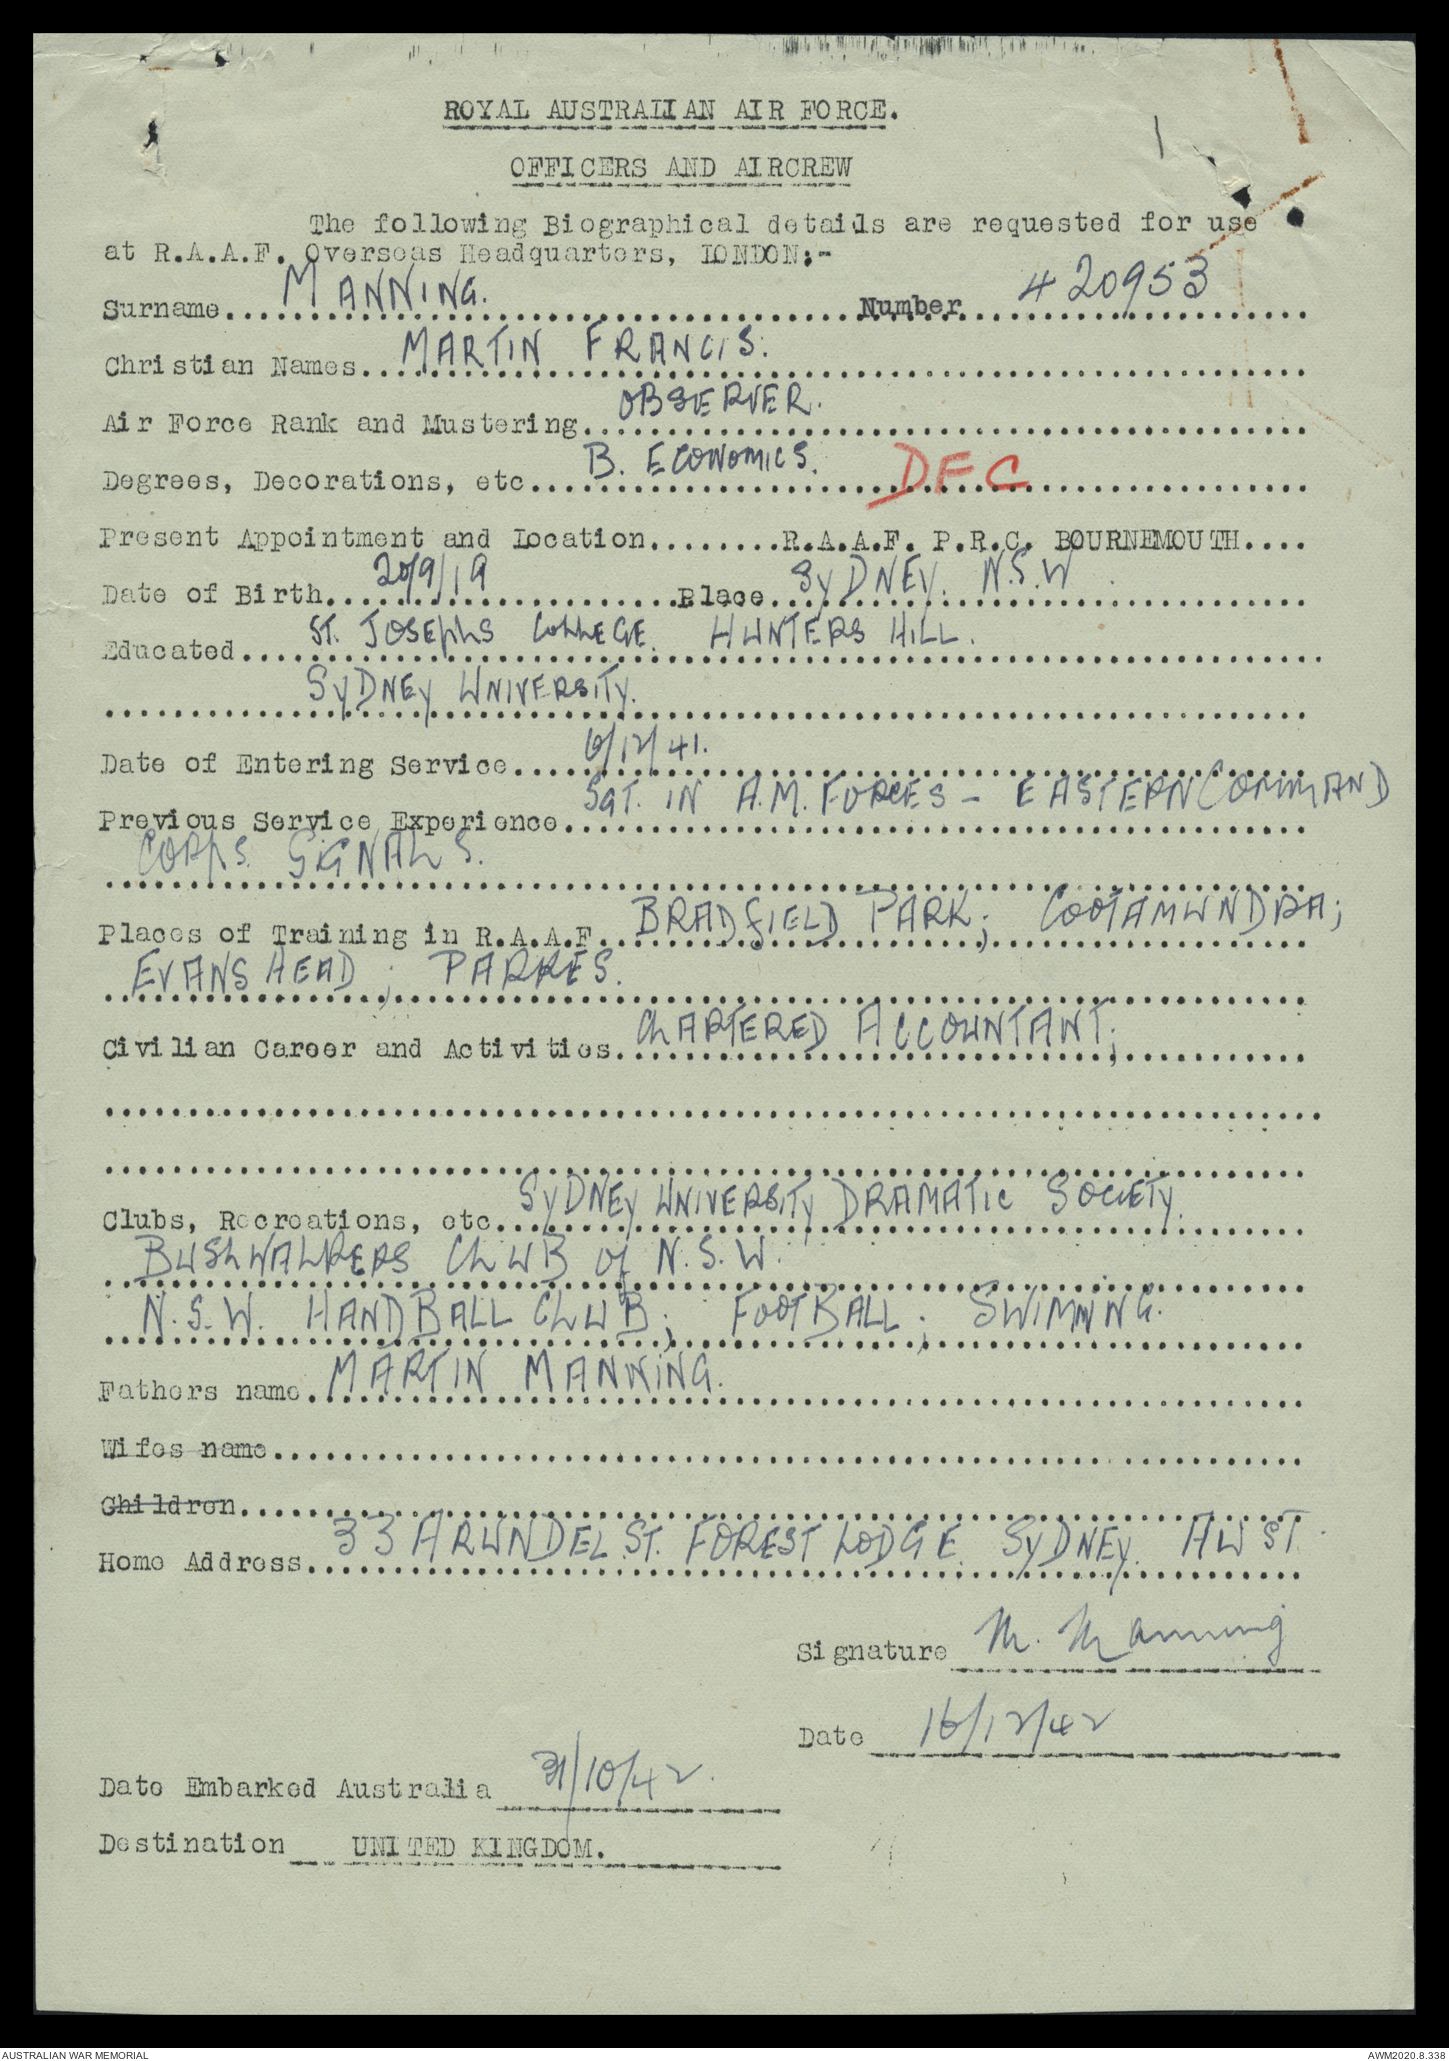 ROYAL AUSTRALIAN AIR FORCE.
OFFICERS AND AIRCREW
The following Biographical details are requested for use
at R.A.A.F. Overseas Headquarters, LONDON:-
Surname....MANNING.....Number....420953....
Christian Names....MARTIN FRANCIS.....
Air Force Rank and Mustering....OBSERVER.....
Degrees, Decorations, etc....B. ECONOMICS. DFC....
Present Appointment and Location........R.A.A.F. P.R.C. BOURNEMOUTH....
Date of Birth....20/9/19....Place....SYDNEY. N.S.W.....
Educated....ST. JOSEPHS COLLEGE. HUNTERS HILL.....
SYDNEY UNIVERSITY.
Date of Entering Service....6/12/41.....
Previous Service Experience....SGT. IN A.M. FORCES - EASTERN COMMAND
CORPS SIGNALS.
Places of Training in R.A.A.F....BRADFIELD PARK; COOTAMUNDRA;
EVANS HEAD; PARKES.
Civilian Career and Activities....CHARTERED ACCOUNTANT;....
Clubs, Recreations, etc....SYDNEY UNIVERSITY DRAMATIC SOCIETY.
BUSHWALKERS CLUB of N.S.W.
N.S.W. HANDBALL CLUB; FOOTBALL; SWIMMNG.
Fathers name....MARTIN MANNING.....
Wifes name....
Children....
Home Address....33 ARUNDEL ST. FOREST LODGE. SYDNEY. AUST.
Signature M. Manning
Date 16/12/42
Date Embarked Australia 31/10/42.
Destination UNITED KINGDOM.
AUSTRALIAN WAR MEMORIAL AWM2020.8.338